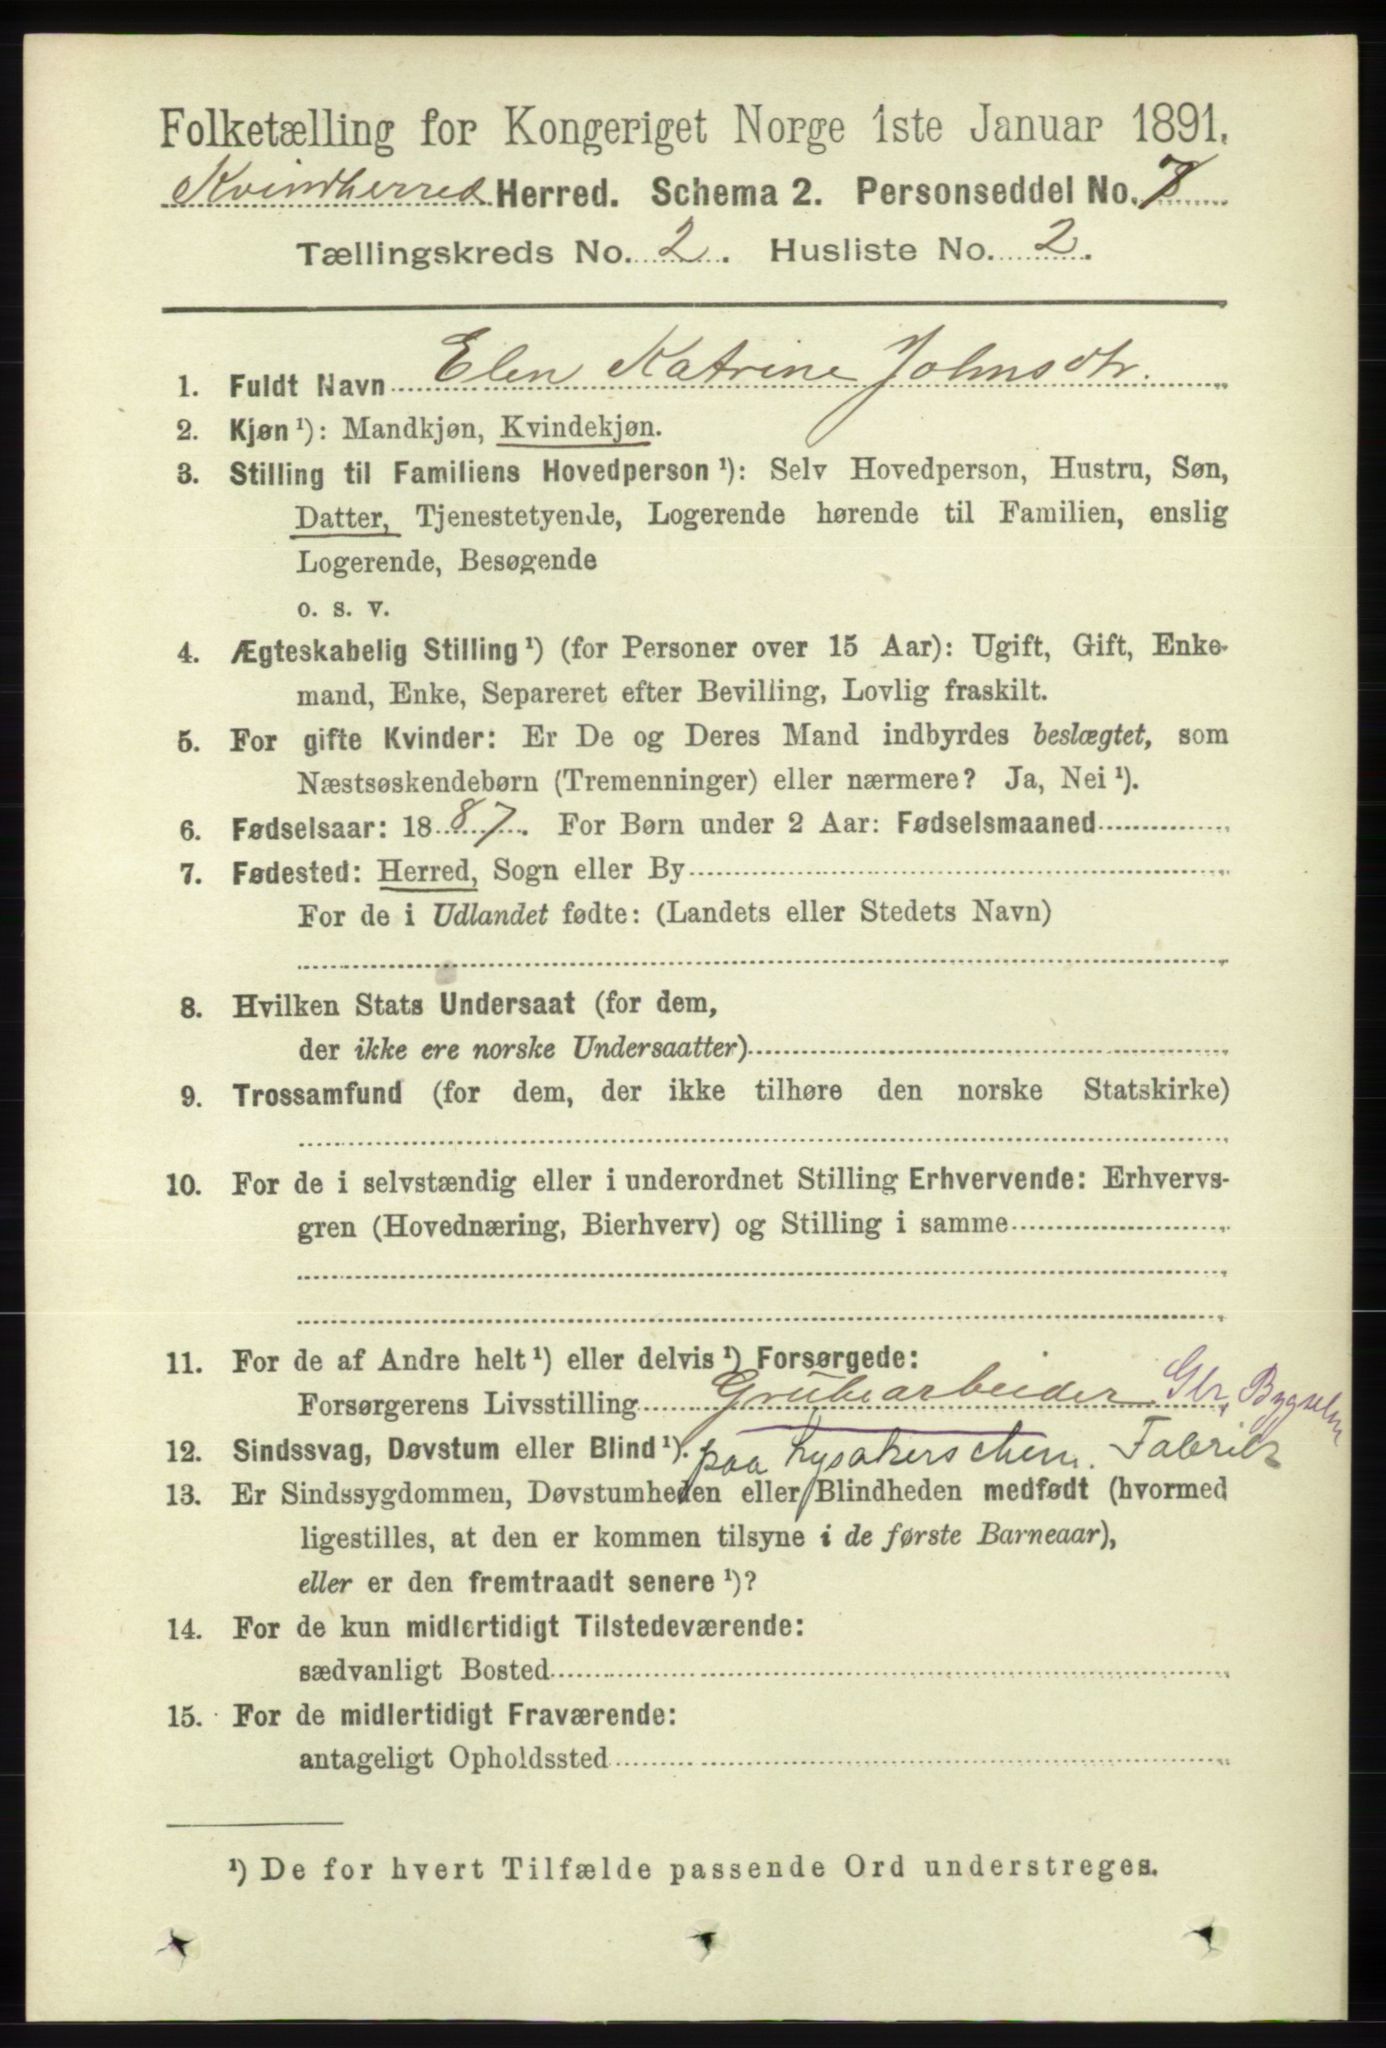 Folketælling for Kongeriget Norge 1ste Januar 1891.
Kvindherred Herred. Schema 2. Personseddel No. 7
Tællingskreds No. 2. Husliste No. 2.
1. Fuldt Navn Elen Katrine Johnsdtr.
2. Kjøn ¹): Mandkjøn, Kvindekjøn.
3. Stilling til Familiens Hovedperson ¹): Selv Hovedperson, Hustru, Søn,
Datter, Tjenestetyende, Logerende hørende til Familien, enslig
Logerende, Besøgende
o. s. v.
4. Ægteskabelig Stilling ¹) (for Personer over 15 Aar): Ugift, Gift, Enke-
mand, Enke, Separeret efter Bevilling, Lovlig fraskilt.
5. For gifte Kvinder: Er De og Deres Mand indbyrdes beslægtet, som
Næstsøskendebørn (Tremenninger) eller nærmere? Ja, Nei ¹).
6. Fødselsaar: 1887. For Børn under 2 Aar: Fødselsmaaned
7. Fødested: Herred, Sogn eller By
For de i Udlandet fødte: (Landets eller Stedets Navn)
8. Hvilken Stats Undersaat (for dem,
der ikke ere norske Undersaatter)
9. Trossamfund (for dem, der ikke tilhøre den norske Statskirke)
10. For de i selvstændig eller i underordnet Stilling Erhvervende: Erhvervs-
gren (Hovednæring, Bierhverv) og Stilling i samme
11. For de af Andre helt ¹) eller delvis ¹) Forsørgede:
Forsørgerens Livsstilling Grubearbeider Gbr, Bygseln
12. Sindssvag, Døvstum eller Blind ¹). paa Lysakers chem. Fabrik
13. Er Sindssygdommen, Døvstumheden eller Blindheden medfødt (hvormed
ligestilles, at den er kommen tilsyne i de første Barneaar),
eller er den fremtraadt senere ¹)?
14. For de kun midlertidigt Tilstedeværende:
sædvanligt Bosted
15. For de midlertidigt Fraværende:
antageligt Opholdssted
¹) De for hvert Tilfælde passende Ord understreges.